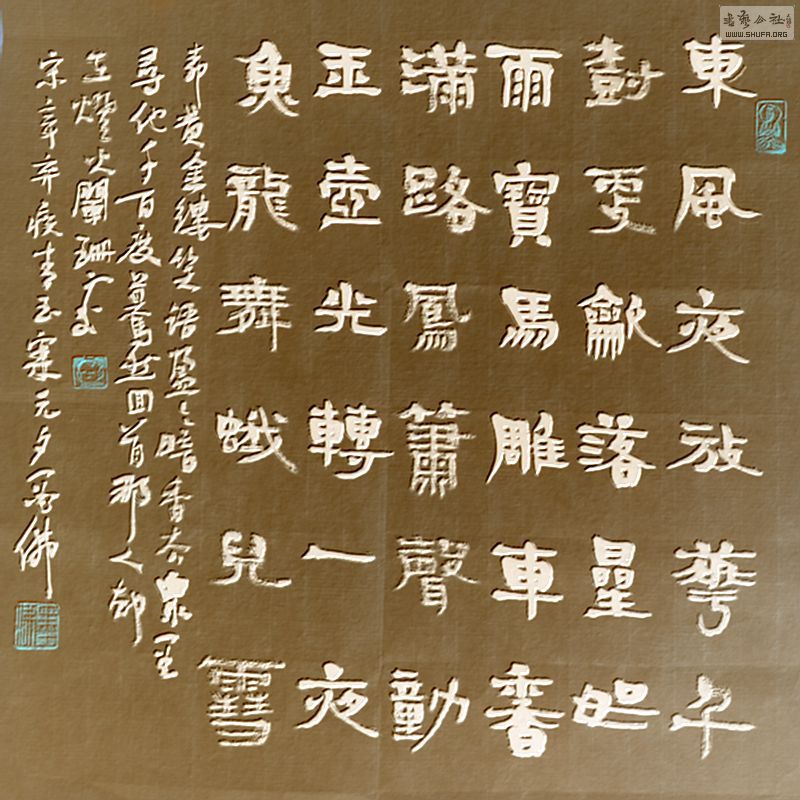 東風夜放華千
尌更龡落星如
雨寶馬雕車香
滿路鳳簫聲動
玉壺光轉一夜
魚龍舞蛾兒雪
柳黃金縷笑語盈〻暗香去眾里
尋他千百度驀然回首那人却
在燈火闌珊處
宋辛弃疾青玉案元夕墨佛
書藝公社
WWW.SHUFA.ORG